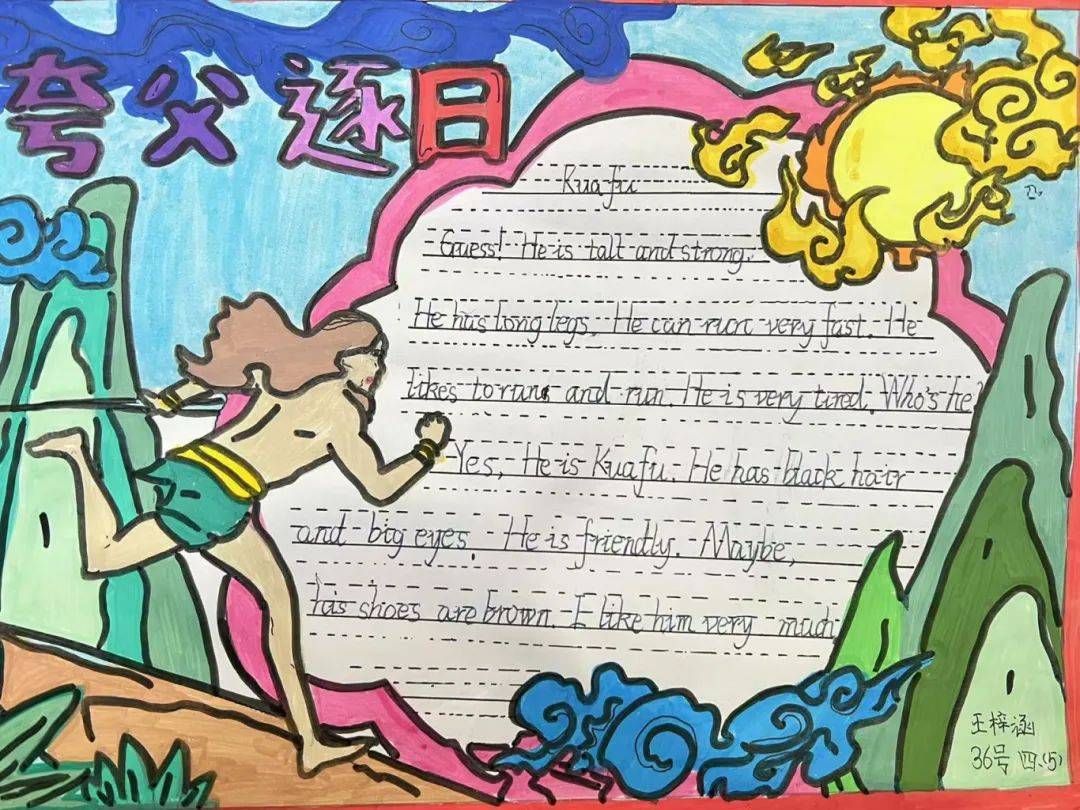 夸父逐日
Kuafu
Guess! He is talt and strong.
He has long legs. He can run very fast. He
likes to run and run. He is very tired. Who's he?
Yes, He is Kuafu. He has black hair
and big eyes. He is friendly. Maybe,
his shoes are brown. I like him very much
王梓涵
36号 四.(5)